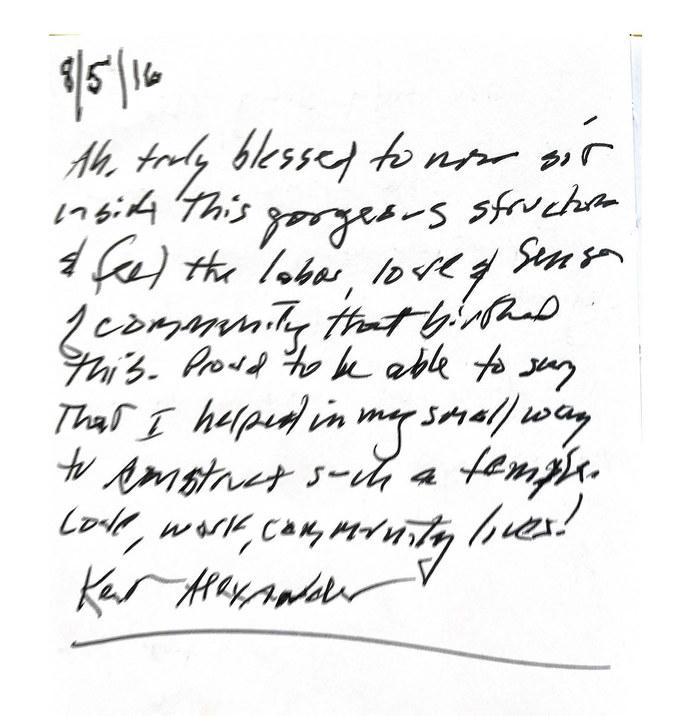 8/5/16
Ah, truly blessed to now sit
inside this gorgeous structure
& feel the labor, love & sense
of community that birthed
this. Proud to be able to say
that I helped in my small way
to construct such a temple.
Love, work, community lives!
Alexander